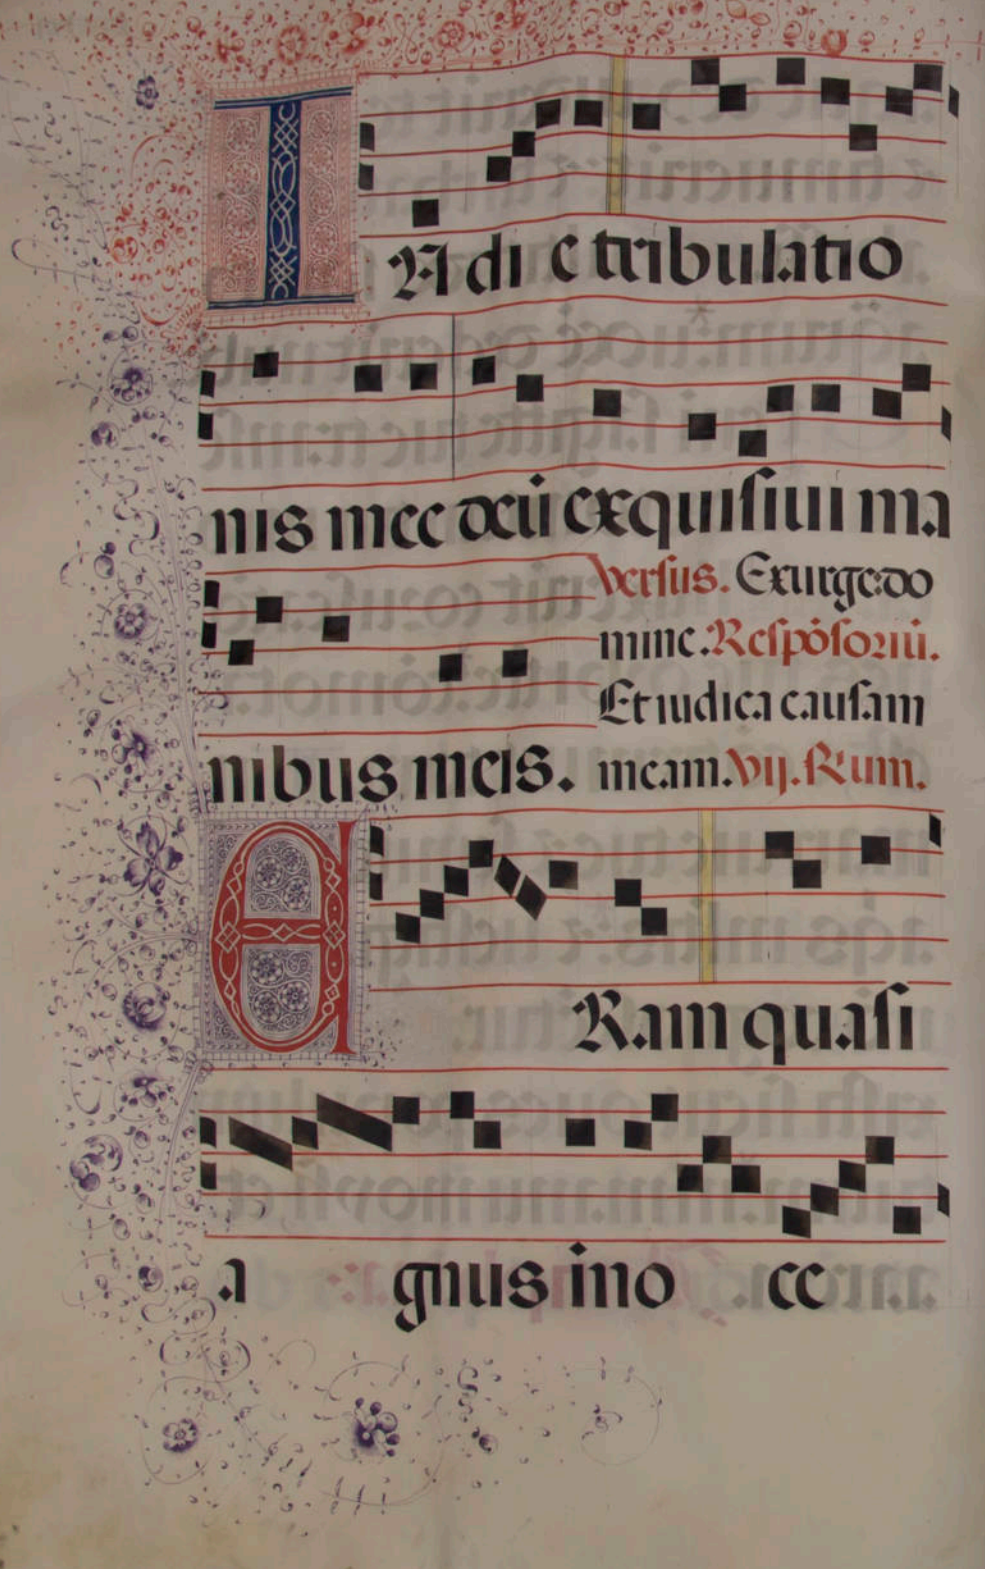 IN die tribulatio
nis mee deū exquisiui ma
Versus. Exurge do
mine. Respōsoriū.
Et iudica causam
nibus meis. meam. Vij. Rum.
ERam quasi
a gnus ino ce